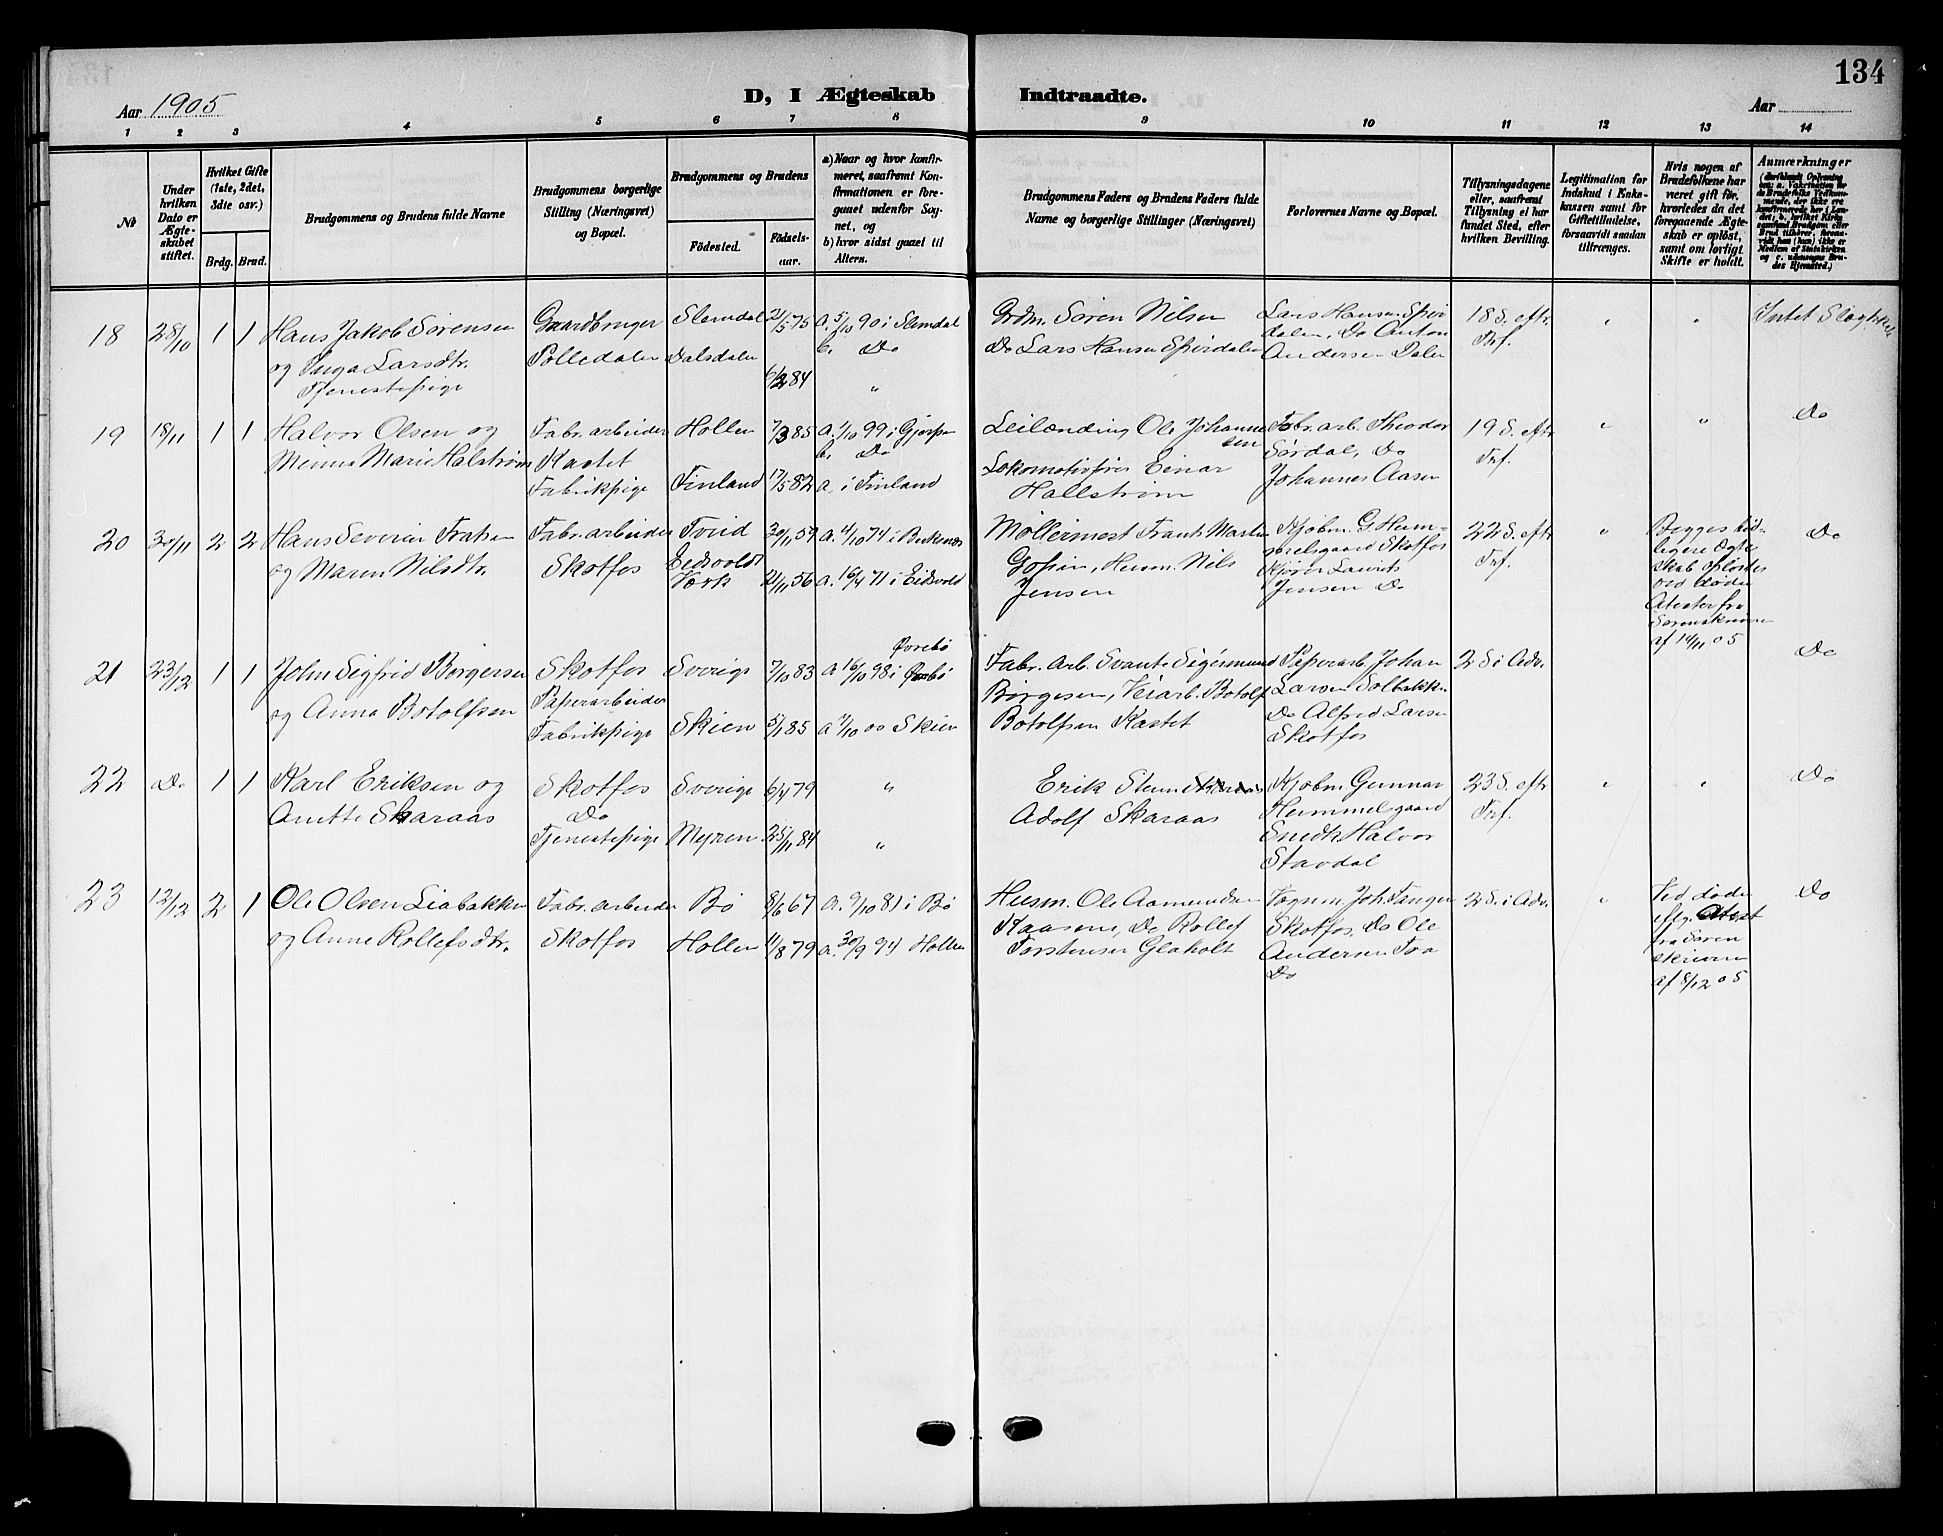 134
Aar 1905
D, I Ægteskab Indtraadte.
Aar
1 2 3 4 5 6 7 8 9 10 11 12 13 14
No
Under hvilken Dato er Ægteskabet stiftet.
Hvilket Gifte (1ste, 2det, 3dte osv.)
Brdg. Brud.
Brudgommens og Brudens fulde Navne
Brudgommens borgerlige Stilling (Næringsvei) og Bopæl.
Brudgommens og Brudens
Fødested.
Fødselsaar.
a) Naar og hvor konfirmeret, saafremt Konfirmationen er foregaaet udenfor Sognet, og
b) hvor sidst gaaet til Alters.
Brudgommens Faders og Brudens Faders fulde Navne og borgerlige Stillinger (Næringsvei)
Forlovernes Navne og Bopæl.
Tillysningsdagene eller, saafremt Tillysning ei har fundet Sted, efter hvilken Bevilling.
Legitimation for Indskud i Enkekassen samt for Giftetilladelse, forsaavidt saadan tiltrænges.
Hvis nogen af Brudefolkene har været gift før, hvorledes da det foregaaende Ægteskab er opløst, samt om lovligt Skifte er holdt.
Anmærkninger
18 28/10 1 1 Hans Jakob Sørensen Gaardbruger Slemdal 21/5 75 a. 5/10 90 i Slemdal Grdm. Søren Nilsen Lars Hansen 18 S. eftr. " " Intet Slægtsk.
og Inga Larsdtr. Polledalen Dalsdalen b. Do Do Lars Hansen Spirdalen dalen, Do Anton Trf.
Tjenestepige 6/2 84 " Andersen Dalen
19 18/11 1 1 Halvor Olsen og Fabr. arbeider Hollen 7/3 85 a. 1/10 99 i Gjerpen Leilænding Ole Johannesen Fabr. arb. Theodor 19 S. eftr " " Do
Marie Halstrøm Kastet b. Do Lokomotivfører Einar Sørdal, Do Trf.
Fabrikpige Finland 17/5 82 a. i Finland Hallstrøm Johannes Aasen
20 30/11 2 2 Hans Severin Fabr. arbeider Tveid 30/11 59 a. 4/10 74 i Birkenæs Møllermest. Frants Martin Kjøbm. G. Hem- 22 S. eftr " Begges tid- Do
og Maren Nilsdtr. Skotfos Eidsvolds Værk 21/11 56 a. 16/4 71 i Eidsvold Husm. Nils melsgaard Skotfos Trf. ligere Ægte-
Jensen Kjører Laurits skab opløstes
Jensen Do ved døden
Attester fra
Sorenskriveren
af 14/11 05
21 23/12 1 1 John Sigfrid Børgersen Skotfos Sverige 7/10 83 a 16/10 98 i Øvrebø Fabr. arb. Svante Sigismund Papirarb. Johan 2 S i Adv. Do
og Anna Botolfsen Papirarbeider Børgesen, Veiarb. Botolf Larsen Solbakken
Fabrikpige Skien 5/1 85 a 7/10 00 Skien Botolfsen Kastet Do Alfred Larsen
Skotfos
22 Do 1 1 Karl Eriksen og Skotfos Sverige 6/4 79 " Erik Stenn Kjøbm Gunnar 23 S. eftr " " Do
Anette Skaraas Do Adolf Skaraas Hemmelsgaard Trf.
Tjenestepige Myren 25/11 84 " Smedk Halvor
Stavdal
23 12/12 2 1 Ole Olsen Liabakken Fabr. arbeider Bø 8/6 67 a. 9/10 81 i Bø Husm. Ole Aamundsen Vognm. Joh. Tangen 2 S. i Adv. " Ved døden Do
og Anne Rollefsdtr. Skotfos Hollen 11/8 79 a. 30/9 94 Hollen Kaasene, Do Rollef Skotfos, Do Ole eflg. Attest
Torstensen Glaholt Andersen Traa fra Soren
Do skriveren
af 8/12 05